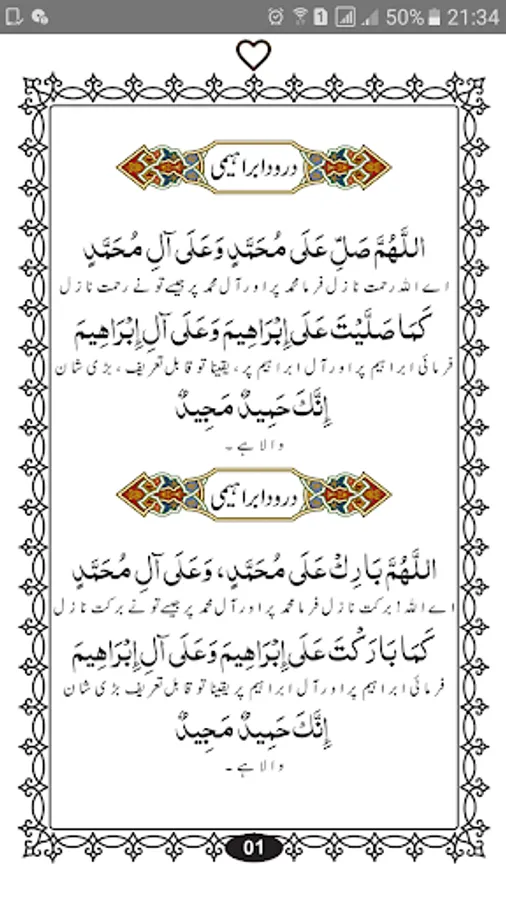 1 50% 21:34
درود ابراہیمی
اللَّهُمَّ صَلِّ عَلَى مُحَمَّدٍ وَعَلَى آلِ مُحَمَّدٍ
اے اللہ رحمت نازل فرما محمد پر اور آل محمد پر جیسے تو نے رحمت نازل
كَمَا صَلَّيْتَ عَلَى إِبْرَاهِيمَ وَعَلَى آلِ إِبْرَاهِيمَ
فرمائی ابراہیم پر اور آل ابراہیم پر، یقینا تو قابل تعریف، بڑی شان
إِنَّكَ حَمِيدٌ مَجِيدٌ
والا ہے۔
درود ابراہیمی
اللَّهُمَّ بَارِكْ عَلَى مُحَمَّدٍ، وَعَلَى آلِ مُحَمَّدٍ
اے اللہ! برکت نازل فرما محمد پر اور آل محمد پر جیسے تو نے برکت نازل
كَمَا بَارَكْتَ عَلَى إِبْرَاهِيمَ وَعَلَى آلِ إِبْرَاهِيمَ
فرمائی ابراہیم پر اور آل ابراہیم پر یقینا تو قابل تعریف بڑی شان
إِنَّكَ حَمِيدٌ مَجِيدٌ
والا ہے۔
01